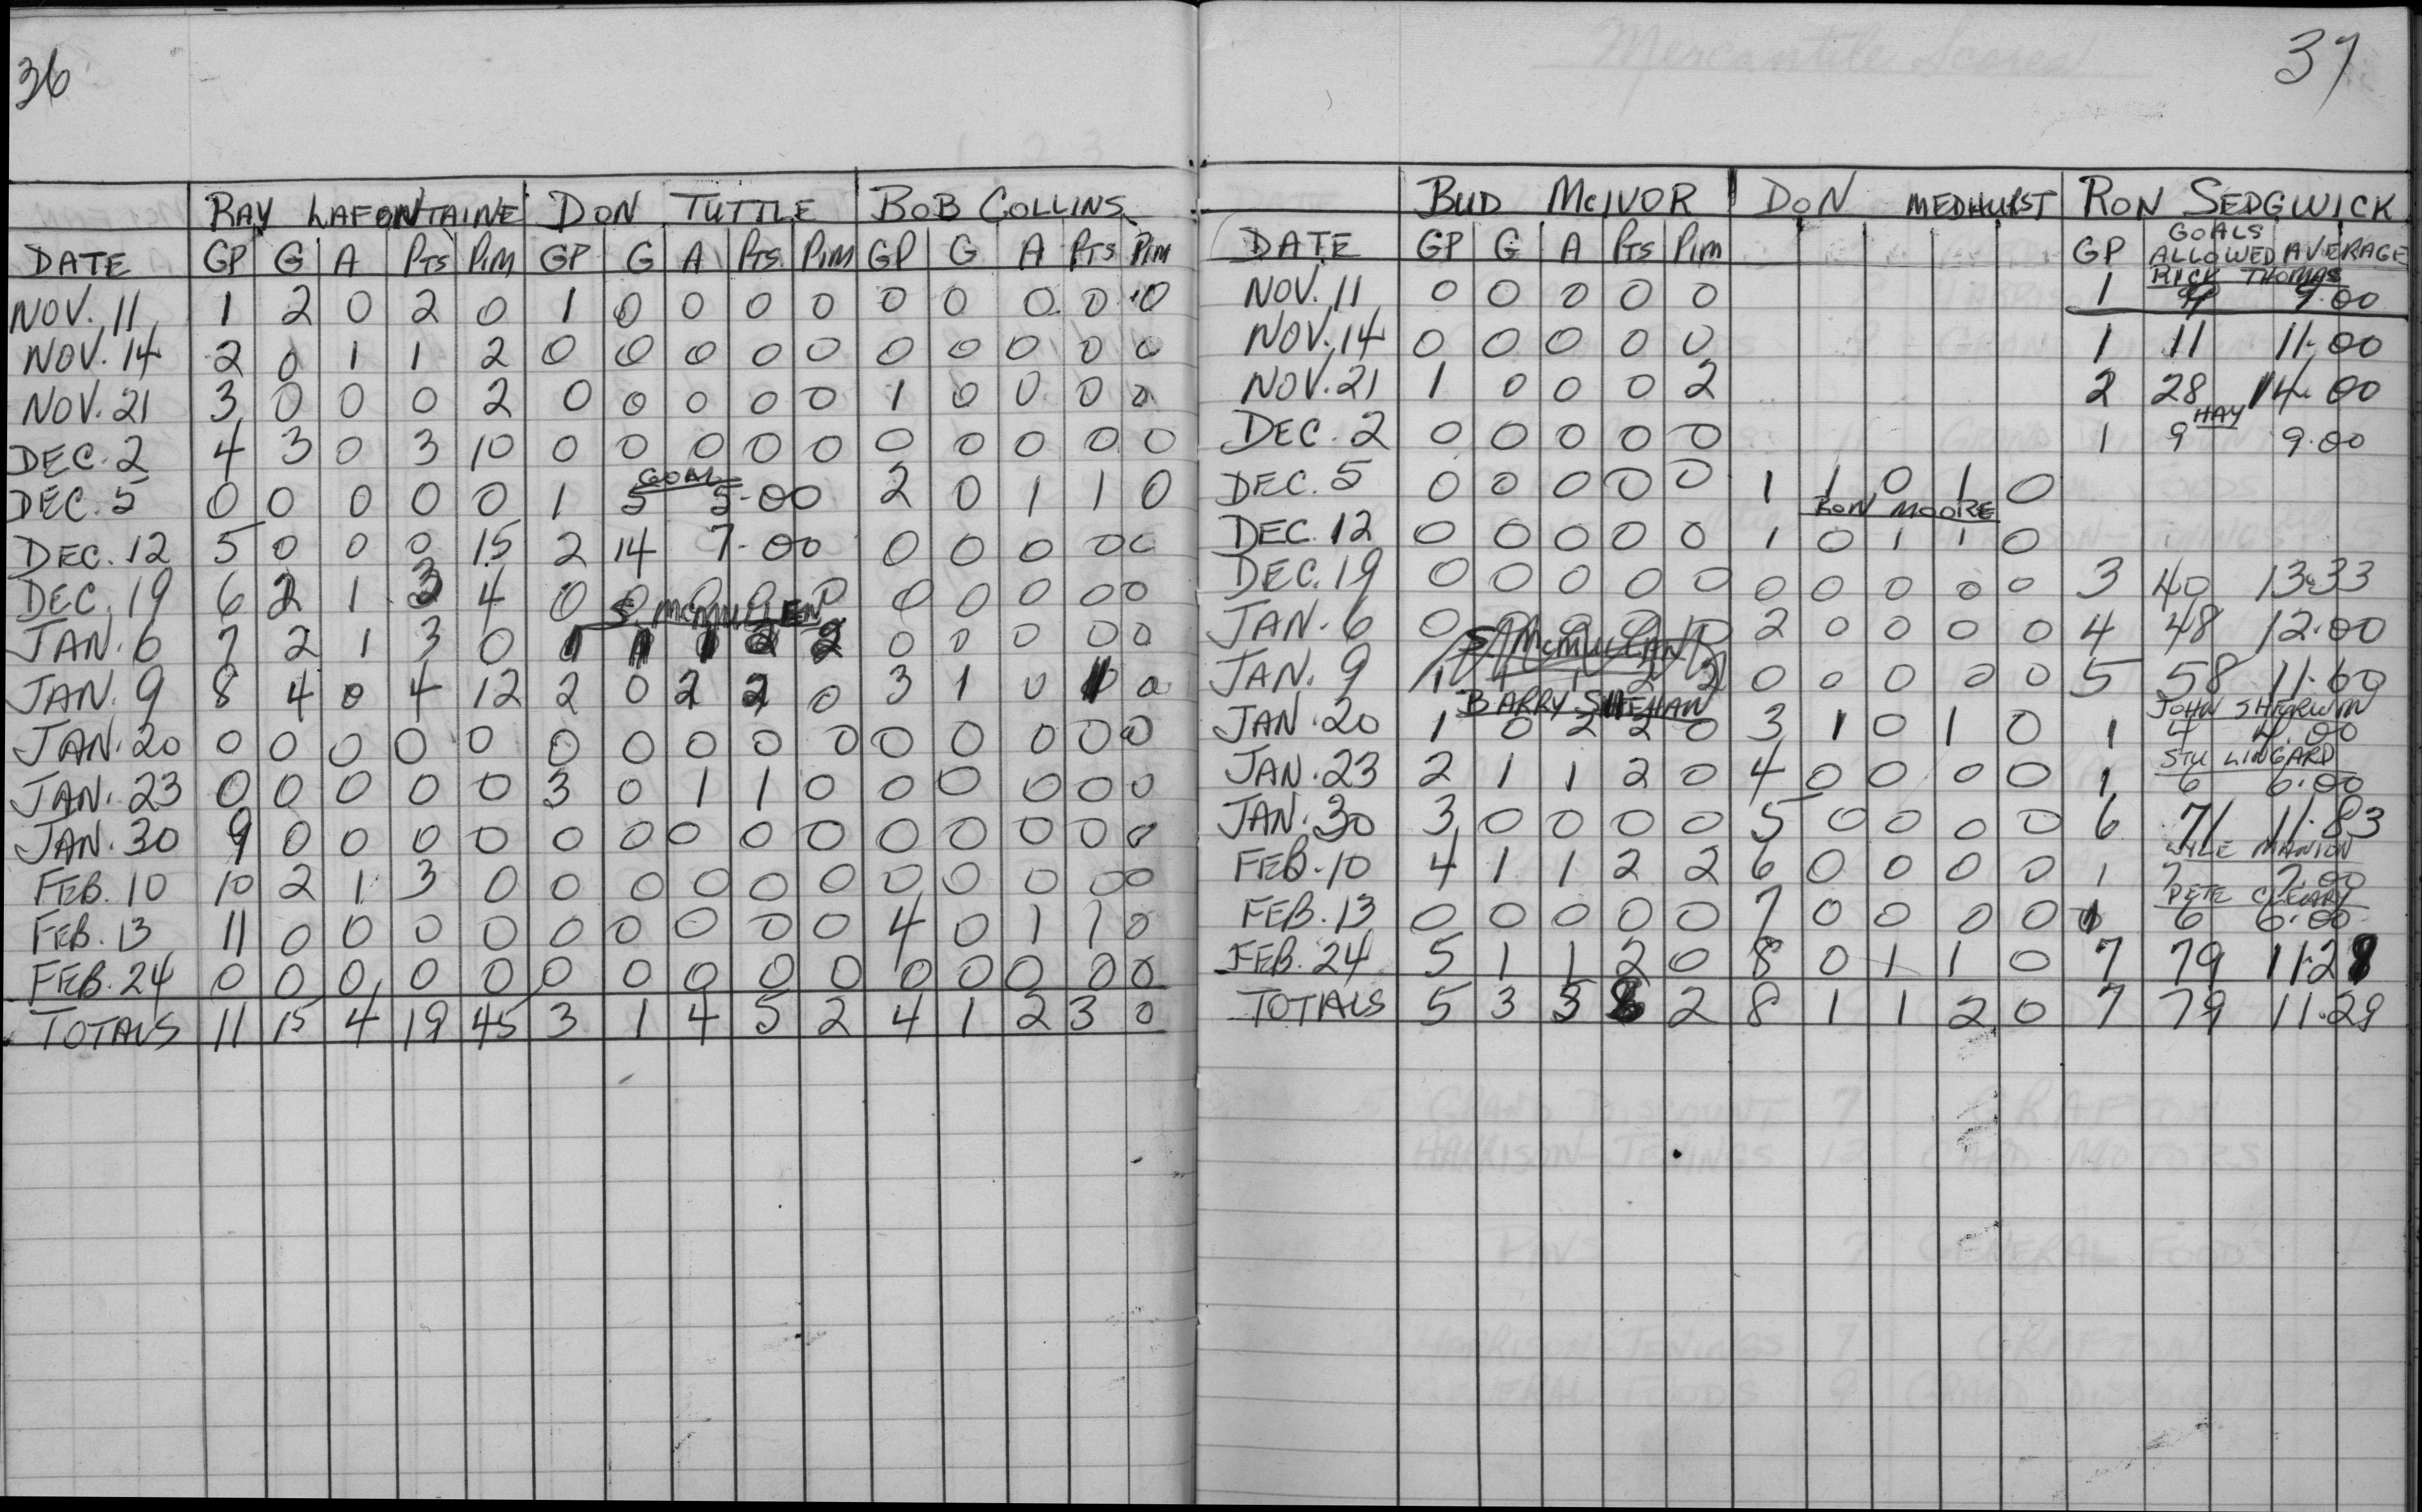 36
RAY LAFONTAINE DON TUTTLE BOB COLLINS
DATE GP G A PTS PIM GP G A PTS PIM GP G A PTS PIM
NOV. 11 1 2 0 2 0 1 0 0 0 0 0 0 0 0 0
NOV. 14 2 0 1 1 2 0 0 0 0 0 0 0 0 0 0
NOV. 21 3 0 0 0 2 0 0 0 0 0 1 0 0 0 0
DEC. 2 4 3 0 3 10 0 0 0 0 0 0 0 0 0 0
GOAL
DEC. 5 0 0 0 0 0 1 5 5.00 2 0 1 1 0
DEC. 12 5 0 0 0 15 2 14 7.00 0 0 0 0 0
DEC. 19 6 2 1 3 4 0 0 0 0 0 0 0 0 0 0
S. MCMULLEN
JAN. 6 7 2 1 3 0 1 1 1 2 2 0 0 0 0 0
JAN. 9 8 4 0 4 12 2 0 2 2 0 3 1 0 1 0
JAN. 20 0 0 0 0 0 0 0 0 0 0 0 0 0 0 0
JAN. 23 0 0 0 0 0 3 0 1 1 0 0 0 0 0 0
JAN. 30 9 0 0 0 0 0 0 0 0 0 0 0 0 0 0
FEB. 10 10 2 1 3 0 0 0 0 0 0 0 0 0 0 0
FEB. 13 11 0 0 0 0 0 0 0 0 0 4 0 1 1 0
FEB. 24 0 0 0 0 0 0 0 0 0 0 0 0 0 0 0
TOTALS 11 15 4 19 45 3 1 4 5 2 4 1 2 3 0
Mercantile
37
BUD MCIVOR DON MEDHURST RON SEDGWICK
DATE GP G A PTS PIM GP GOALS ALLOWED AVERAGE
RICK THOMAS
NOV. 11 0 0 0 0 0 1 9 9.00
NOV. 14 0 0 0 0 0 1 11 11.00
NOV. 21 1 0 0 0 2 2 28 14.00
HAY
DEC. 2 0 0 0 0 0 1 9 9.00
DEC. 5 0 0 0 0 0 1 1 0 1 0
RON MOORE
DEC. 12 0 0 0 0 0 1 0 1 1 0
DEC. 19 0 0 0 0 0 0 0 0 0 0 3 40 13.33
JAN. 6 0 0 0 0 0 2 0 0 0 0 4 48 12.00
S. MCMULLAN
JAN. 9 1 1 1 2 2 0 0 0 0 0 5 58 11.60
BARRY SHEEHAN JOHN SHERWIN
JAN. 20 1 0 2 2 0 3 1 0 1 0 1 4 4.00
STU LINGARD
JAN. 23 2 1 1 2 0 4 0 0 0 0 1 6 6.00
JAN. 30 3 0 0 0 0 5 0 0 0 0 6 71 11.83
MANION
FEB. 10 4 1 1 2 2 6 0 0 0 0 1 7 7.00
PETE CLEARY
FEB. 13 0 0 0 0 0 7 0 0 0 0 1 6 6.00
FEB. 24 5 1 1 2 0 8 0 1 1 0 7 79 11.28
TOTALS 5 3 5 8 2 8 1 1 2 0 7 79 11.29